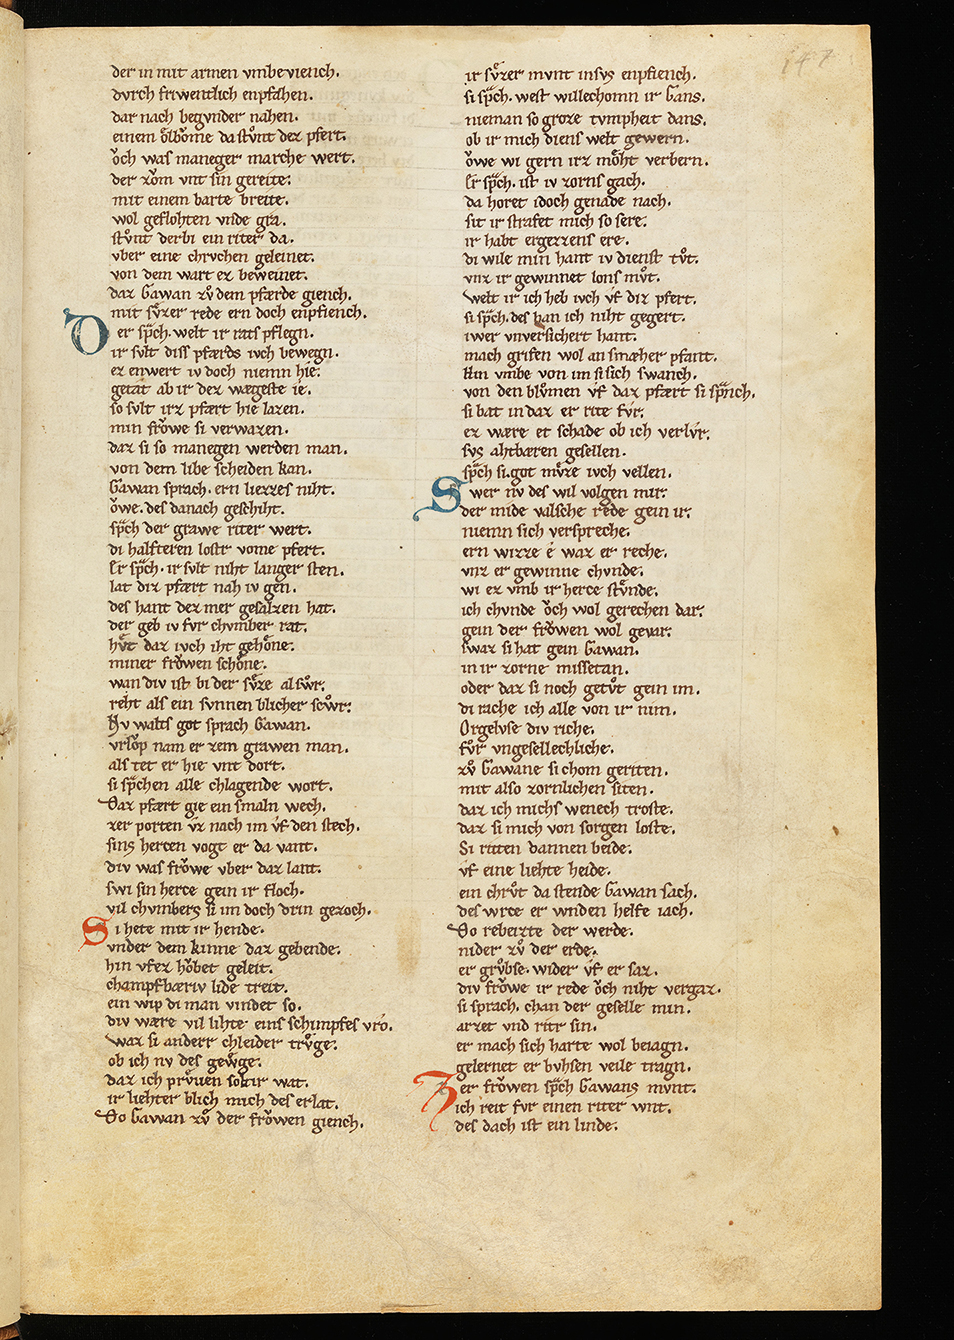 147
der in mit armen vmbeviench.
dvrch friwentlich enpfahen.
dar nach begvnder nahen.
einem ȯlbȯme da stv̊nt dez pfert.
ȯch was maneger marche wert.
der zȯm vnt sin gereite.
mit einem barte breite.
wol geflohten vnde gra.
stv̊nt derbi ein riter da.
vber eine chrvchen geleinet.
von dem wart ez beweinet.
daz Gawan zv̊ dem pfærde giench.
mit sv̊zer rede ern doch enpfiench.
Der sp̃ch. welt ir rats pflegn.
ir svlt diss pfærds ivch bewegn.
ez enwert iv doch niemn hie.
getat ab ir dez wægeste ie.
so svlt irz pfært hie lazen.
min frȯwe si verwazen.
daz si so manegen werden man.
von dem libe scheiden kan.
Gawan sprach. ern liezzes niht.
ȯwe. des danach geschiht.
sp̃ch der grawe riter wert.
di halfteren lostr vome pfert.
Er sp̃ch. ir svlt niht langer sten.
lat diz pfært nah iv gen.
des hant dez mer gesalzen hat.
der geb iv fvr chvmber rat.
hv̊t daz ivch iht gehȯne.
miner frȯwen schȯne.
wan div ist bi der sv̊ze al sv̊r.
reht als ein svnnen blicher scv̊r.
Nv walts got sprach Gawan.
vrlȯp nam er zem grawen man.
als tet er hie vnt dort.
si sp̃chen alle chlagende wort.
Daz pfært gie ein smaln wech.
zer porten vz nach im vf den stech.
sins hercen vogt er da vant.
div was frȯwe vber daz lant.
swi sin herce gein ir floch.
vil chvmbers si im doch drin gezoch.
Si hete mit ir hende.
vnder dem kinne daz gebende.
hin vfez hȯbet geleit.
champfbæriv lide treit.
ein wip di man vindet so.
div wære vil lihte eins schimpfes vro.
Waz si anderr chleider trv̊ge.
ob ich nv des gewȯge.
daz ich prv̊uen solt ir wat.
ir liehter blich mich des erlat.
Do Gawan zv̊ der frȯwen giench.
ir sv̊zer mvnt in svs enpfiench.
si sp̃ch. west willechomn ir Gans.
nieman so groze tvmpheit dans.
ob ir mich diens welt gewern.
ȯwe wi gern irz mȯht verbern.
Er sp̃ch. ist iv zorns gach.
da horet idoch genade nach.
sit ir strafet mich so sere.
ir habt ergezzens ere.
di wile min hant iv dienst tv̊t.
vnz ir gewinnet lons mv̊t.
Welt ir ich heb ivch vf diz pfert.
si sp̃ch. des han ich niht gegert.
iwer vnversichert hant.
mach grifen wol an smæher pfant.
Hin vmbe von im si sich swanch.
von den blv̊men vf daz pfært si sp̃nch.
si bat in daz er rite fvr.
ez wære et schade ob ich verlvr.
svs ahtbæren gesellen.
sp̃ch si. got mv̊ze ivch vellen.
Swer nv des wil volgen mir.
der mide valsche rede gein ir.
niemn sich verspreche.
ern wizze é waz er reche.
vnz er gewinne chvnde.
wi ez vmb ir herce stv̊nde.
ich chvnde ȯch wol gerechen dar.
gein der frȯwen wol gevar.
swaz si hat gein Gawan.
in ir zorne missetan.
oder daz si noch getv̊t gein im.
di rache ich alle von ir nim.
Orgelvse div riche.
fv̊r vngesellechliche.
zv̊ Gawane si chom geriten.
mit also zornlichen siten.
daz ich michs wenech troste.
daz si mich von sorgen loste.
Si riten dannen beide.
vf eine liehte heide.
ein chrv̊t da stende Gawan sach.
des wrce er wnden helfe iach.
Do rebeizte der werde.
nider zv̊ der erde.
er grv̊bse. wider vf er saz.
div frȯwe ir rede ȯch niht vergaz.
si sprach. chan der geselle min.
arzet vnd ritr sin.
er mach sich harte wol beiagn.
gelernet er bvhsen veile tragn.
Zer frȯwen sp̃ch Gawans mvnt.
ich reit fvr einen riter wnt.
des dach ist ein linde.